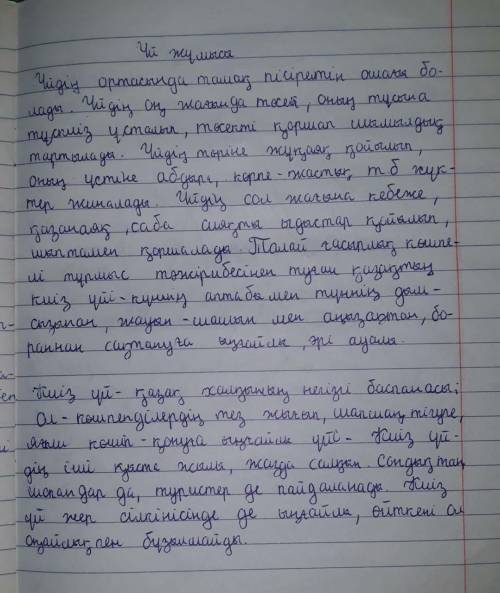 Үй жұмысы
Үйдің ортасында тамақ пісіретін ошағы бо-
лады. Үйдің оң жағында төсек, оның тұсына
тускиіз ұсталып, төсекті қоршап шымылдық
тартылады. Үйдің төріне жүкаяқ қойылып,
оның үстіне абдыра, көрпе-жастық т.б жүк-
тер жиналады. Үйдің сол жағына кебеже,
қазанаяқ, саба сияқты ыдыстар қойылып,
шыптамен қоршалады. Талай ғасырлық көшпе-
лі тұрмыс тәжірибесінен туған қазақтың
киіз үйі-күннің аптабы мен түннің дым-
сызынан, жауын-шашын мен аңызақтан, бо-
раннан сақтануға ыңғайлы, әрі ауалы.
Киіз үй- қазақ халқының негізгі баспанасы;
Ол-көшпенділердің тез жығып, шапшаң тігуге,
яғни көшіп-қонуға ыңғайлы үйі- Киіз үй-
дің іші қыста жылы, жазда салқын. Сондықтан
шопандар да, туристер де пайдаланады. Киіз
үй жер сілкінісінде де ыңғайлы, өйткені ол
оңайлықпен бұзылмайды.